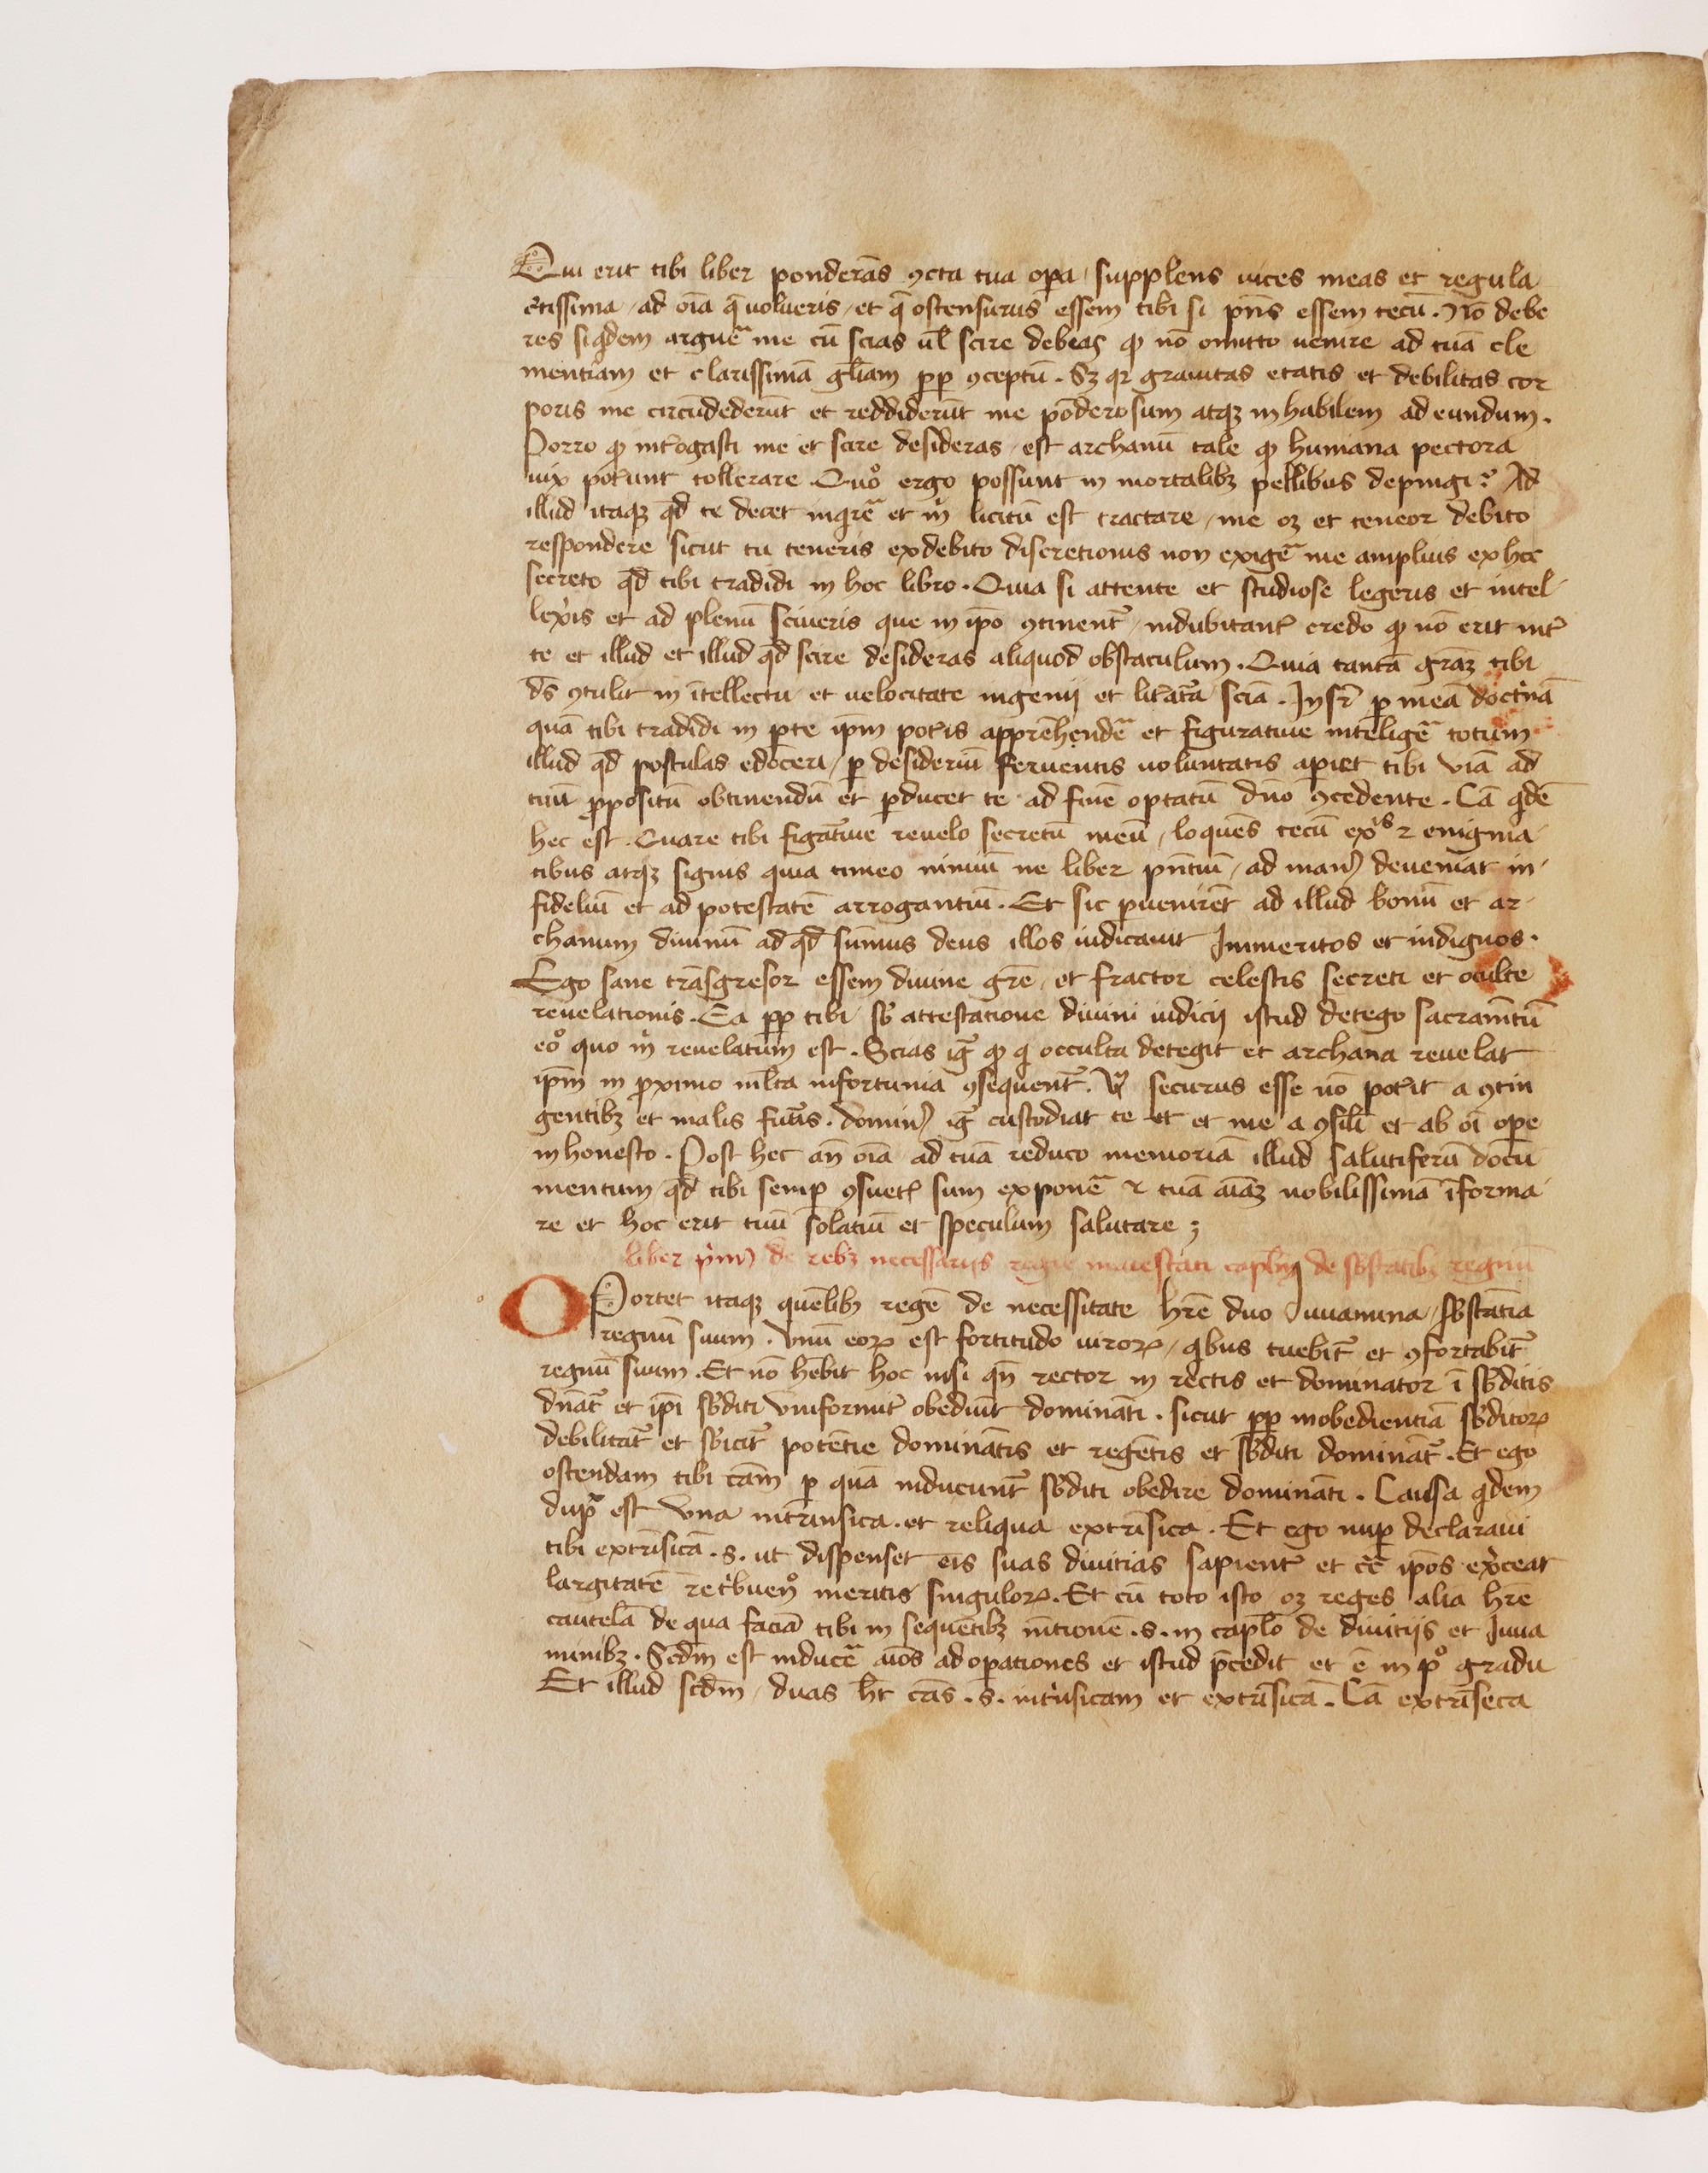 Qui erit tibi liber ponderās ꝯcta tua oꝑa / supplens uices meas et regula
c̄tissima / ad oīa q̄ uolueris / et q̄ ostensurus essem tibi si pn̄s essem tecū . Nō debe
res siqdem arguē me cū scias ul̄ scire debeas ꝙ nō omitto uenire ad tuā cle
mentiam et clarissimā gl̄iam ꝓp ꝯceptū . Sꝫ qr grauitas etatis et debilitas cor
poris me circūdederūt et reddiderūt me pōderosum atqꝫ inhabilem ad eundum .
Porro ꝙ int̄ogasti me et scire desideras / est archanū tale ꝙ humana pectora
uix pot̄unt tollerare . Quo̊ ergo possunt in mortalibꝫ pellibus depingi ? Ad
illud itaqꝫ qd̄ te decet inqrē et m̊ licitū est tractare / me oꝫ et teneor debito
respondere sicut tu teneris exdebito discretionis non exigē me amplius ex hoc
secreto qd̄ tibi tradidi in hoc libro . Quia si attente et studiose legeris et intel
lex̄is et ad plenū sciueris que in ip̄o ꝯtinent̄ / indubitant̄ credo ꝙ nō erit int̄
te et illud et illud qd̄ scire desideras aliquod obstaculum . Quia tantā grāꝫ tibi
ds̄ ꝯtulit in ītellectu et uelocitate ingenij et lit̄at̄a sciā . Insr̄ ꝑ meā doct̊nā
quā tibi tradidi in ꝑte ip̄m pot̄is apprēhendē et figuratiue inteligē totum
illud qd̄ postulas edoceri / ꝑ desideriū feruentis uoluntatis aꝑiet tibi viā ad
tuū ꝓpositū obtinendū et ꝑducet te ad finē optatū dn̄o ꝯcedente . Cā qdē
hec est . Quare tibi figāt̄iue reuelo secretū meū / loquēs tecū ex̊ˢ ⁊ enigma
tibus atqꝫ signis quia timeo nimiū ne liber pn̄tiū / ad manꝰ deueniat in
fideliū et ad potestatē arrogantiū . Et sic ꝑuenirēt ad illud bonū et ar
chanum diuinū ad qd̄ sūmus deus illos iudicauit Immeritos et indignos .
Ego sane trāsgresor essem diuine grē / et fractor celestis secreti et oculte
reuelationis . Ea ꝓp tibi sb̄ attestatione diuini iudicij istud detego sacramn̄tū
eo̊ quo m̊ reuelatum est . Scias ig̃ ꝙ q̊ occulta detegit et archana reuelat
ip̄m in ꝓximo ml̄ta infortunia ꝯsequent̄ . securus esse nō pot̄it a ꝯtin
gentibꝫ et malis fut̄is . dominꝰ ig̃ custodiat te et et me a ꝯsil̄i et ab oī oꝑe
inhonesto . Post hec an̄ oīa ad tuā reduco memoriā illud salutiferū docu
mentum qd̄ tibi semꝑ ꝯsuetꝰ sum exponē ⁊ tuā aīāꝫ nobilissimā īforma
re et hoc erit tuū solatiū et speculum salutare ;
liber p̊mꝰ de rebꝫ necessarijs regie maiestati capl̄m de sb̄statibꝫ regnū
OPortet itaqꝫ quēlibꝫ regē de necessitate hr̄e duo Iuuamina / sb̄stātia
regnū suum . Vnū eoꝝ est fortitudo uiroꝝ / qbus tuebit̄ et ꝯfortabit̄
regnū suum . Et nō hēbit hoc nisi qn̄ rector in rectis et dominator ī sb̄ditis
dn̄at̄ et ip̄i sb̄diti vniformit̄ obediūt domināti . sicut ꝓp inobedientiā sb̄ditoꝝ
debilitat̄ et sb̄icit̄ potētie dominātis et regētis et sb̄diti dominat̄ . Et ego
ostendam tibi cām ꝑ quā inducunt̄ sb̄diti obedire domināti . Causa qdem
dup̊ est vna int̄rinsica . et reliqua extrīsica . Et ego nuꝑ declaraui
tibi extrīsicā . s . ut dispenset eīs suas diuitias sapient̄ et c̄c̄ ip̄os ex̄ceat
largitatē ret̊buen̊ meritis singuloꝝ . Et cū toto isto oꝫ reges aliā hr̄e
cautelā de qua faciā tibi in sequētibꝫ mētionē . s . in capl̄o de diuitijs et Iuua
minibꝫ . Scd̄m est inducē aīos ad oꝑationes et istud p̄cedit et ē in p̊ gradu
Et illud scd̄m / duas hr̄ cās . s . int̊nsicam et extrīsicā . Cā extrīseca